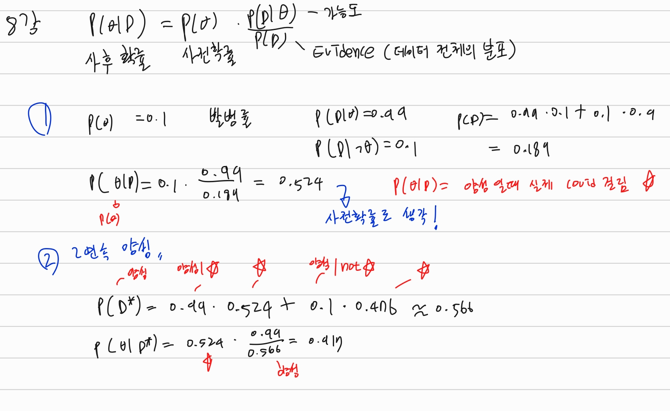 8강 P(θ|D) = P(θ) · P(D|θ) / P(D) - 가능도
사후 확률 사전확률 Evidence (데이터 전체의 분포)
① P(θ) = 0.1 발병률 P(D|θ) = 0.99 P(D) = 0.99 · 0.1 + 0.1 · 0.9
P(D|¬θ) = 0.1 = 0.189
P(θ|D) = 0.1 · 0.99 / 0.189 = 0.524 P(θ|D) = 양성일때 실제 covid 걸림 ☆
P(θ) 사전확률로 생각!
② 2연속 양성
양성 양성|☆ ☆ 양성|not☆ ☆
P(D*) = 0.99 · 0.524 + 0.1 · 0.476 ≈ 0.566
P(θ|D*) = 0.524 · 0.99 / 0.566 = 0.917
☆ 양성